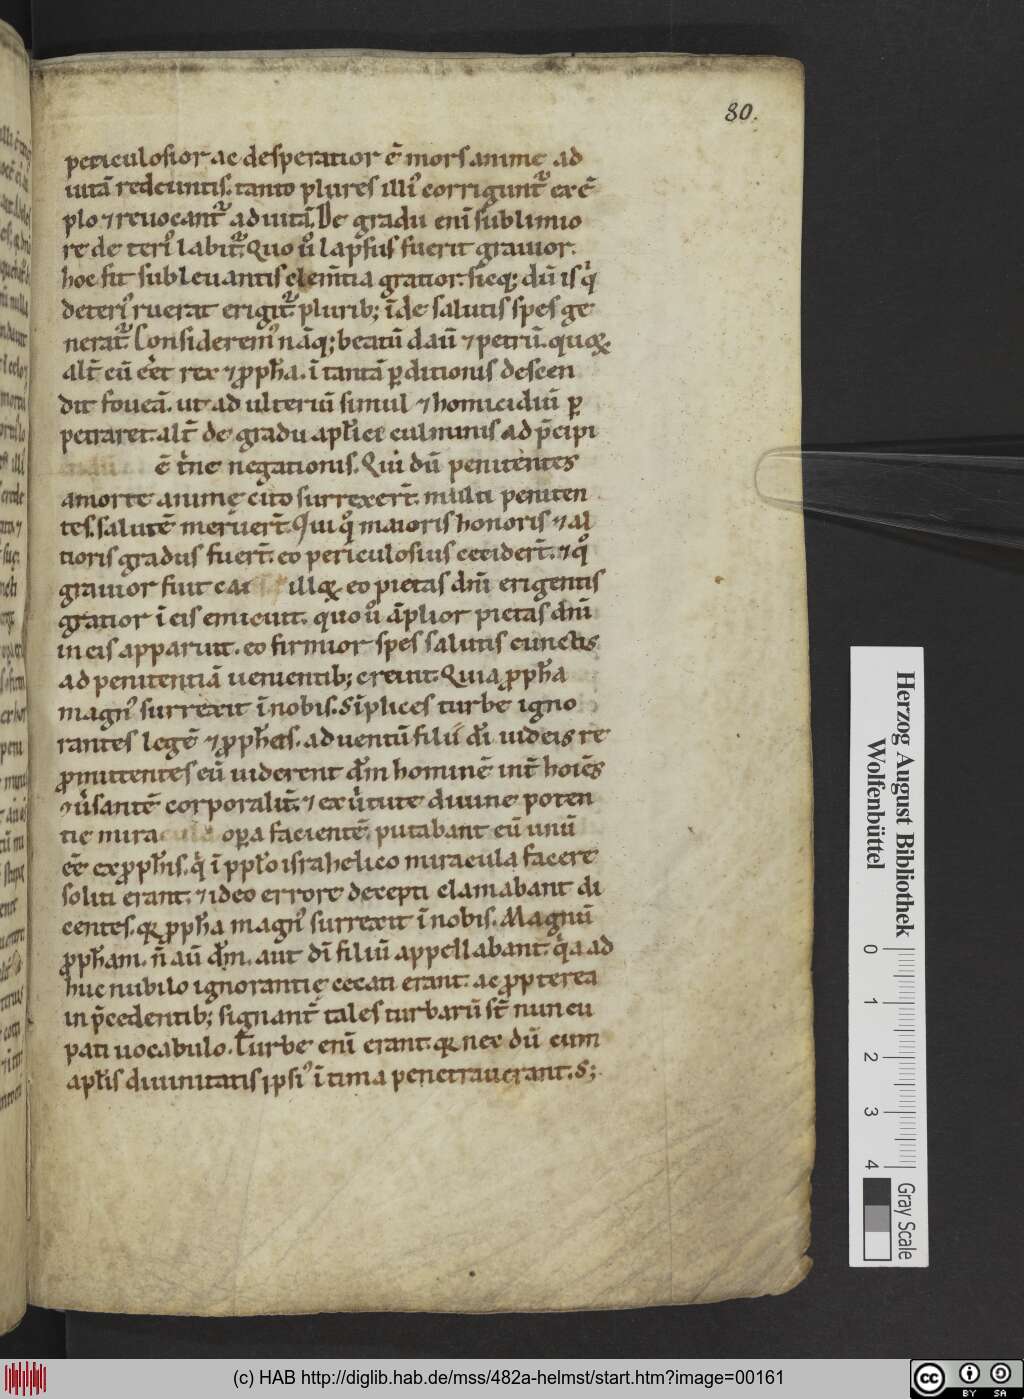 80.
periculosior ac desperatior ē mors animę ad
uitā redeuntis. tanto plures illi᾽ corrigunt᷑ exē
plo ⁊ reuocant᷑ ad uitā. De gradu enī sublimio
re de teri᾽ labit᷑. Quo ū lapsus fuerit grauior.
hoc fit subleuantis clem̄tia gratior. sicq; dū is q̇
deteri᾽ ruerat erigit᷑ plurib; īde salutis spes ge
nerat᷑. Considerem᾽ nāq; beatū dauī ⁊ petrū. quoꝝ
alt̄ cū eēt rex ⁊ ꝓph̄a. ī tantā ꝑditionis descen
dit foueā. ut ad ulteriū simul ⁊ homicidiū ꝑ
petraret. alt̄ de gradu apl̄ici culminis ad p̄cipi
ē t̄ne negationis. Qui dū penitentes
a morte animę cito surrexer̄t. multi peniten
tes. salutē meruer̄t. Qui qͦ maioris honoris ⁊ al
tioris gradus fuer̄t. eo periculosius cecider̄t. ⁊ qͦ
grauior fuit ca illoꝝ. eo pietas dn̄i erigentis
gratior ī eis emicuit. quo ū āplior pietas dn̄i
in eis apparuit. eo firmior spes salutis cunctis
ad penitentiā uenientib; creuit. Quia ꝓph̄a
magn᾽ surrexit ī nobis. Sīplices turbe igno
rantes legē ⁊ ꝓph̄as. aduentū filii dī. uideis re
ꝓmittentes eū uiderent dm̄ hominē int̄ hoīes
⁊ ūsantē corporalit̄. ⁊ ex ūtute diuine poten
tie mira oꝑa facientē. putabant eū unū
eē ex ꝓph̄is. q̇ ī ppl̄o israhelico miracula facere
soliti erant. ⁊ ideo errore decepti clamabant di
centes. qꝛ ꝓph̄a magn᾽ surrexit ī nobis. Magnū
ꝓph̄am. n̄ aū dm̄. aut dī filiū appellabant. q̇a ad
huc nubilo ignorantię cecati erant. ac ꝓpterea
in p̄cedentib; signant̄ tales turbarū st̄ nuncu
pati uocabulo. Turbe enī erant. qꝛ nec dū cum
apl̄is diuinitatis ipsi᾽ ītima penetrauerant. S;
Herzog August Bibliothek
Wolfenbüttel
0 1 2 3 4
Gray Scale
(c) HAB http://diglib.hab.de/mss/482a-helmst/start.htm?image=00161
cc BY SA